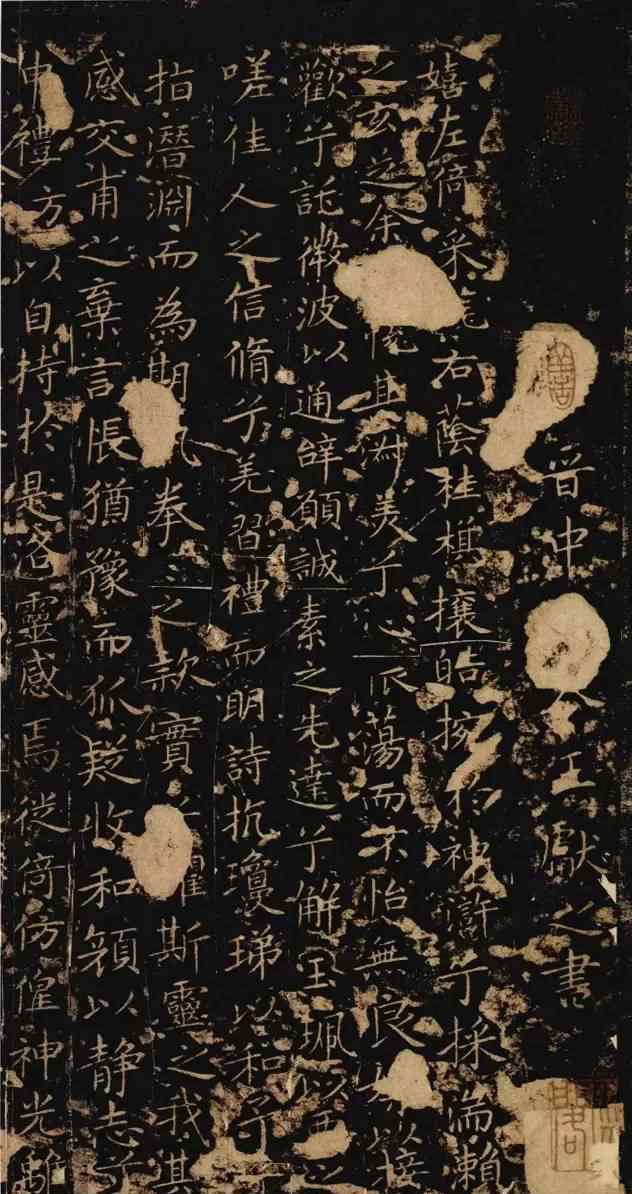 晉中令王獻之書
嬉左倚采旄右蔭桂旗攘皓捥於神滸兮採湍瀨
之玄芝余悅其淑美兮心振蕩而不怡無良以接
歡兮託微波以通辭願誠素之先達兮解玉珮以要之
嗟佳人之信脩兮羌習禮而明詩抗瓊珶以和予兮
指潛淵而為期執拳〻之款實兮懼斯靈之我
感交甫之棄言悵猶豫而狐疑收和顏以靜志兮
申禮防以自持於是洛靈感焉徙倚仿偟神光離